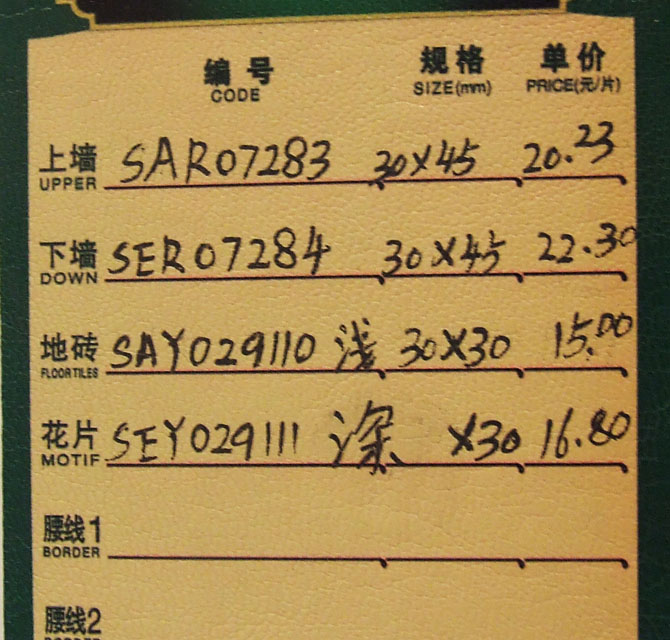 编号 规格 单价
CODE SIZE(mm) PRICE(元/片)
上墙 SAR07283 30X45 20.23
UPPER
下墙 SER07284 30X45 22.30
DOWN
地砖 SAY029110 浅 30X30 15.00
FLOOR TILES
花片 SEY029111 深 X30 16.80
MOTIF
腰线1
BORDER
腰线2
BORDER